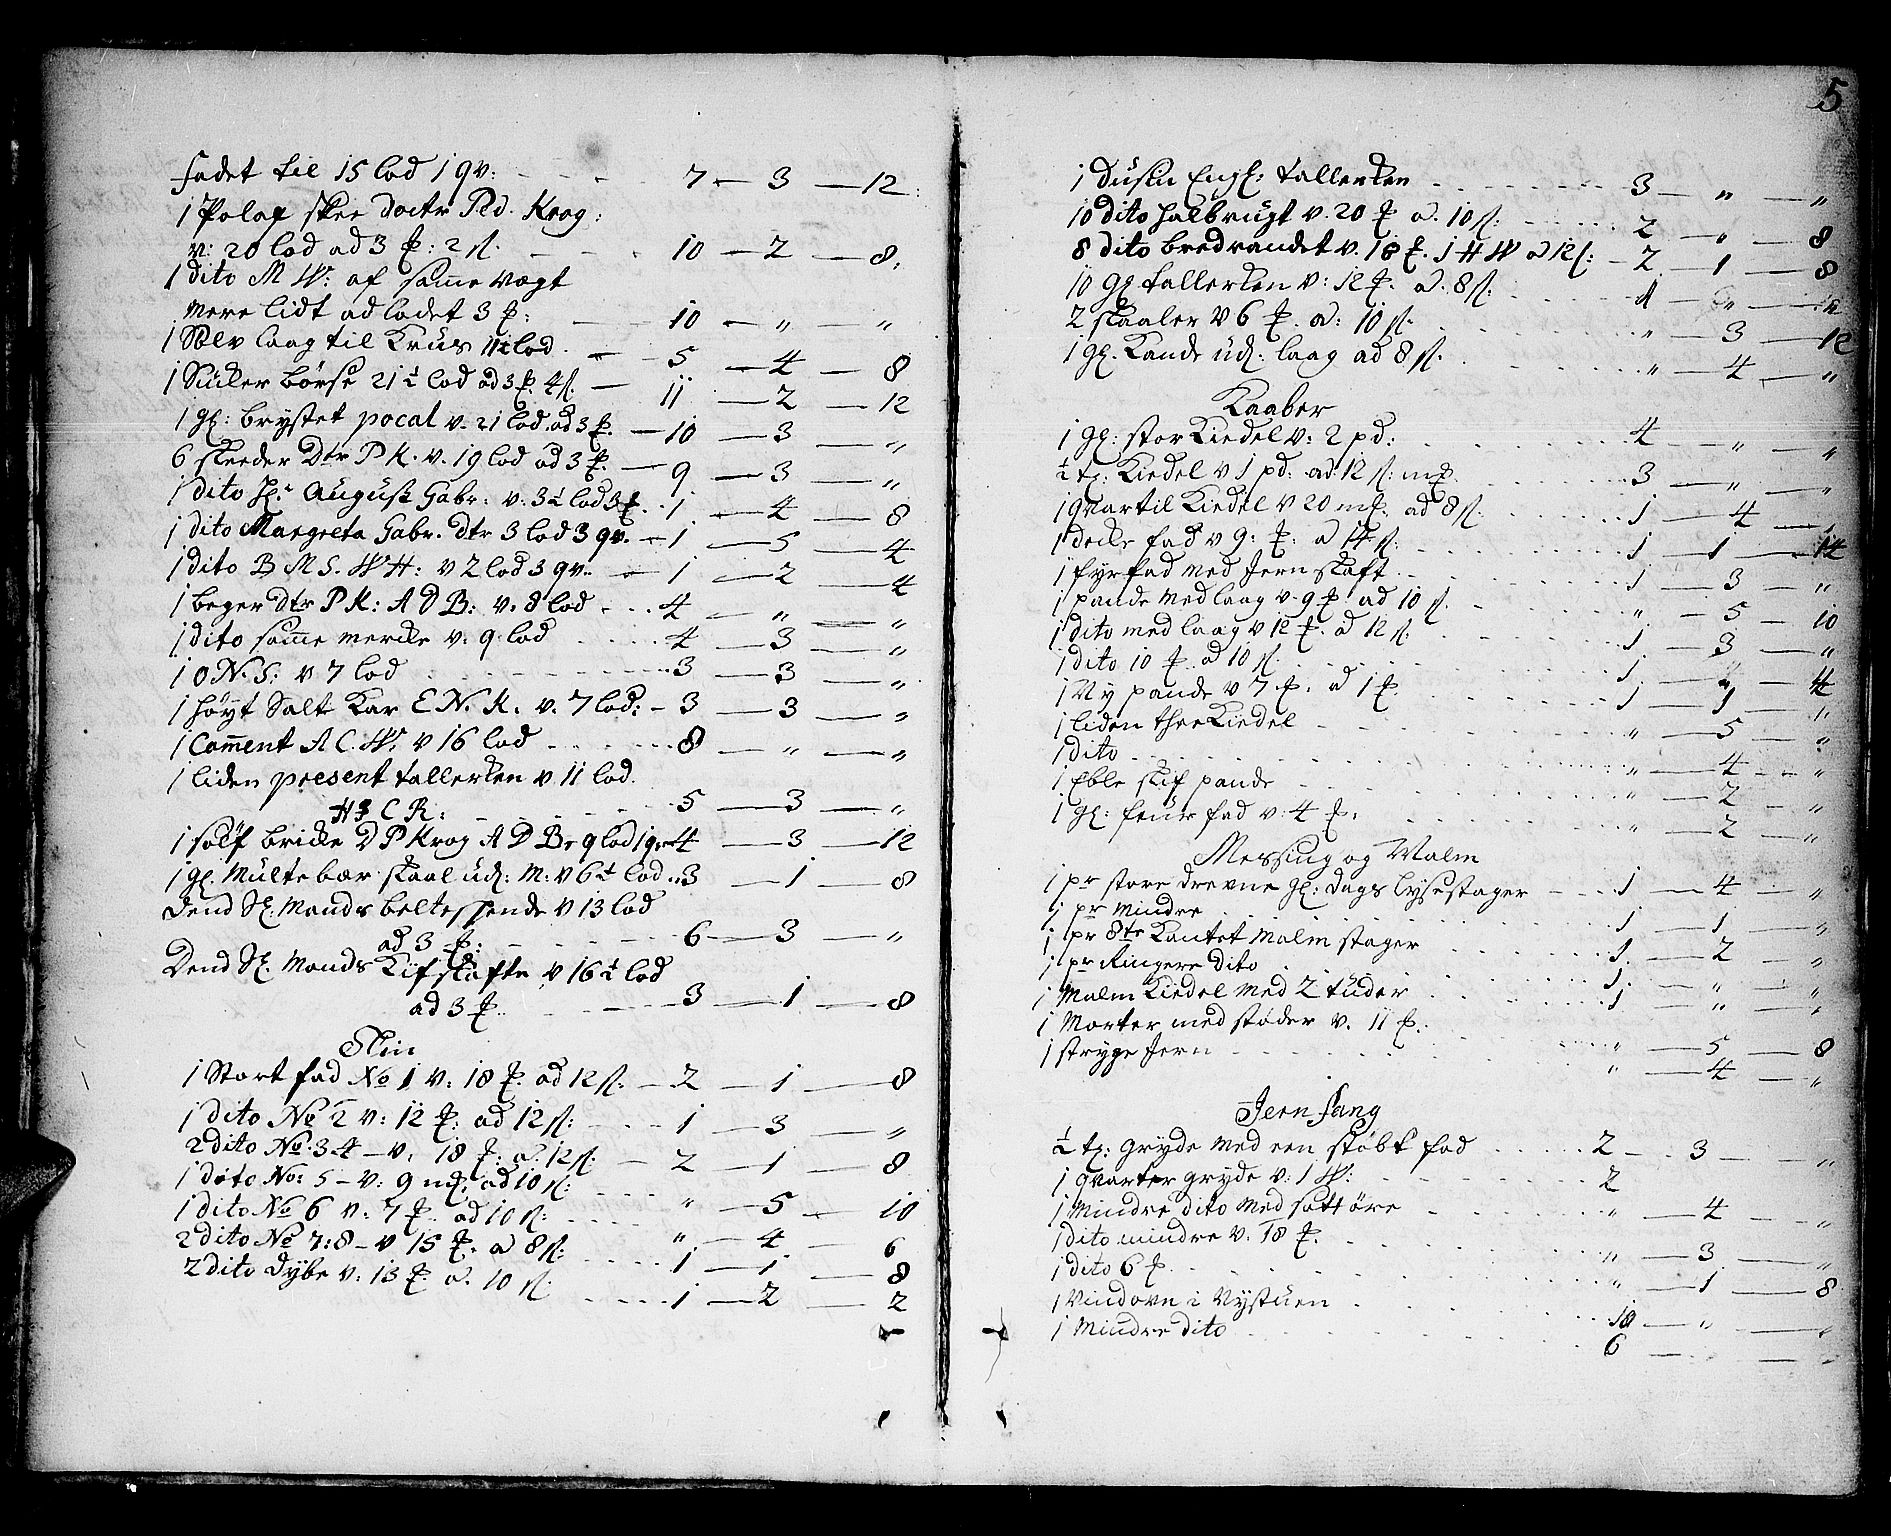 fadet til 15 lod 1 qv: 7 — 3 — 12
1 Polaf skee doctr Ped. Krog:
v: 20 lod ad 3 ℔: 2 ß. 10 — 2 — 8
1 dito M W: af same vægt
mere lidt ad lodet 3 ℔: 10 — " — "
1 Sölv laag til Krus 11½ lod 5 — 4 — 8
1 Sucker börse 21½ lod ad 3 ℔ 4 ß. 11 — 2 — 12
1 gl: brystet pocal v. 21 lod ad 3 ℔. 10 — 3 — "
6 skeeder Dtr P K. v. 19 lod ad 3 ℔. 9 — 3 — "
1 dito Hr August Gabr: v: 3½ lod 3 ℔. 1 — 4 — 8
1 dito Margreta Gabr. Dtr 3 lod 3 qv. 1 — 5 — 4
1 dito B M S. W H: v 2 lod 3 qv. 1 — 2 — 4
1 beger Dtr P K: A D B: v. 8 lod 4 — " — "
1 dito same mercke v. 9 lod 4 — 3 — "
1 O N. S: v 7 lod 3 — 3 — "
1 höyt Salt Kar E N. K. v. 7 lod: 3 — 3 — "
1 Coment A C. W: v 16 lod 8 — " — "
1 liden present tallerken v 11 lod.
H J C R: 5 — 3 — "
1 sölf bricke D P Krog A D B. 9 lod 1 qv 4 — 3 — 12
1 gl. Multebær skaal ud: M: v 6½ lod 3 — 1 — 8
Dend Sl: Mands beltespende v 13 lod
ad 3 ℔: 6 — 3 — "
Dend Sl: Mands Kifskafte v 16½ lod
ad 3 ℔ 3 — 1 — 8
Thin
1 Stort fad No 1 v: 18 ℔. ad 12 ß. 2 — 1 — 8
1 dito No 2 v: 12 ℔: ad 12 ß: 1 — 3 — "
2 dito No. 3 4 — v. 18 ℔: a. 12 ß. 2 — 1 — 8
1 dito No: 5 — v: 9 m℔. ad 10 ß: " — 5 — 10
1 dito No 6 v: 7 ℔ ad 10 ß: " — 4 — 6
2 dito No 7: 8 — v 15 ℔. a 8 ß: 1 — 1 — 8
2 dito dybe v: 13 ℔ a. 10 ß 1 — 2 — 2
5
1 Dusin Engl: tallerken 3 — " — "
10 dito halbrugt v. 20 ℔ a. 10 ß: 2 — " — 8
8 dito bredrandet v. 18 ℔. J H W a 12 ß: 2 — 1 — 8
10 gl tallerken v: 12 ℔. a. 8 ß:
2 skaaler v 6 ℔. a: 10 ß. " — 3 — 12
1 gl. Kande ud: laag ad 8 ß. " — 4 — "
Kaaber
1 gl: stor Kiedel v: 2 pd: 4 — " — "
½ t: Kiedel v 1 pd: ad 12 ß: m℔. 3 — " — "
1 qvartil Kiedel v 20 m℔: ad 8 ß. 1 — 4 — "
1 decke fad v 9: ℔: a 14 ß: 1 — 1 — 14
1 fyrfad med Jern skaft 1 — 3 — "
1 pande med laag v. 9 ℔ ad 10 ß. " — 5 — 10
1 dito med laag v 12 ℔. ad 12 ß. 1 — 3 — "
1 dito 10 ℔. ad 10 ß 1 — " — 4
1 Ny pande v 7 ℔. a 1 ℔. 1 — 1 — "
1 liden thee Kiedel " — 5 — "
1 dito " — 4 — "
1 Eble skif pande " — 2 — "
1 gl: fyur fad v: 4 ℔. " — 2 — "
Messing og Malm
1 pr store drevne gl: dags lysestager 1 — 4 — "
1 pr mindre 1 — 1 — "
1 pr 8te Kantet malm stager 1 — 2 — "
1 pr Ringere dito 1 — " — "
1 Malm Kiedel med 2 tuder 1 — " — "
1 Morter med støder v. 11 ℔. " — 5 — 8
1 stryge Jern " — 4 — "
Jern fang
½ t: Gryde med een støbt fod 2 — 3 — "
1 qvarter gryde v: 1 W: 2
1 Mindre dito med satt öre " — 4 — "
1 dito mindre v. 18 ℔. " — 3 — "
1 dito 6 ℔. " — 1 — 8
1 Vindovn i Nystuen 18 — " — "
1 Mindre dito 6 — " — "